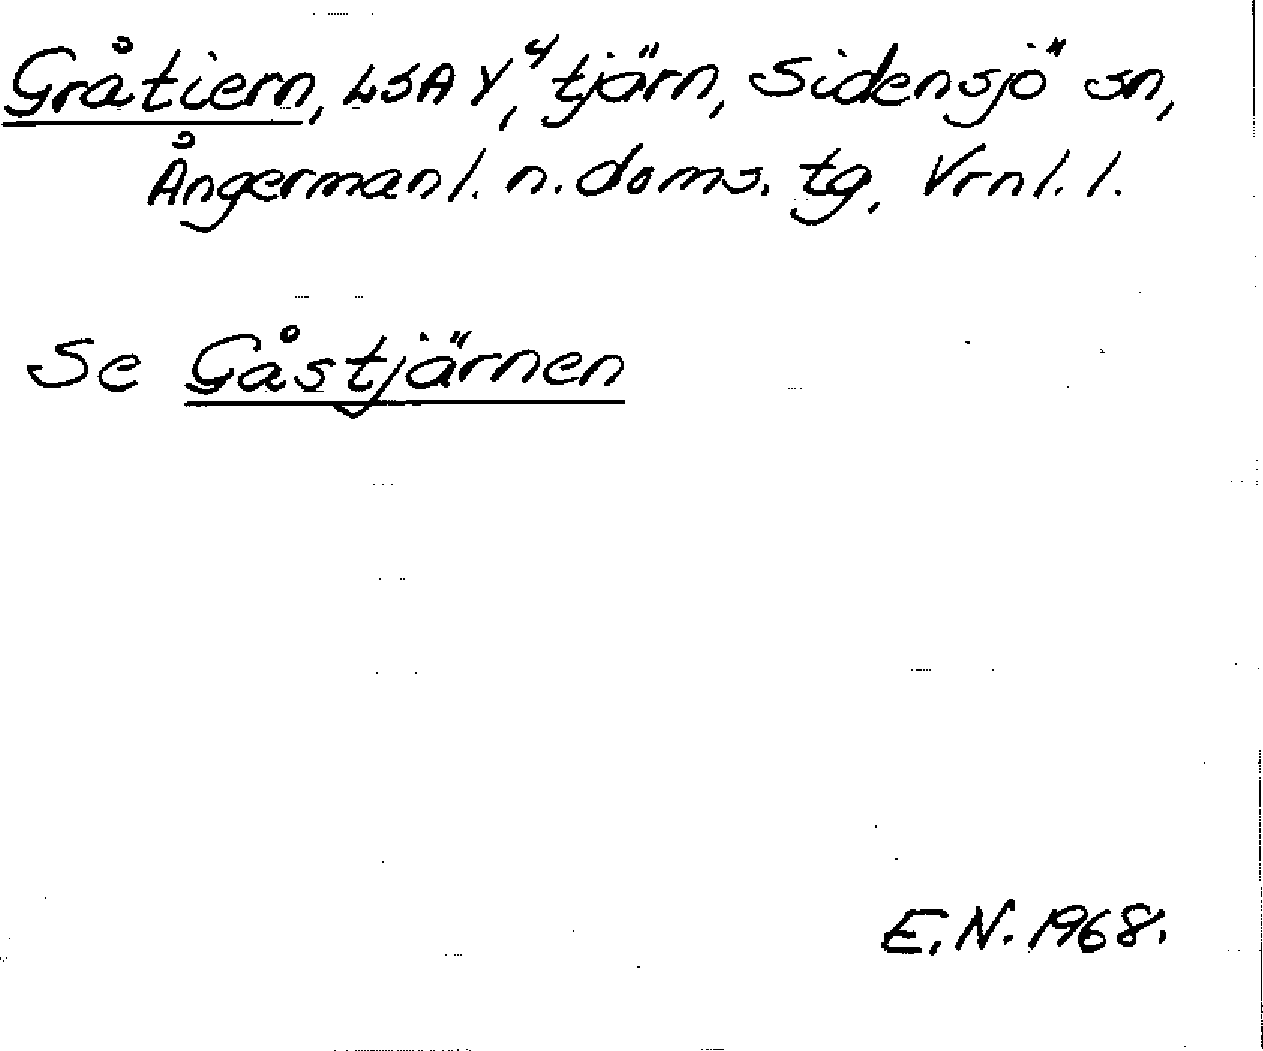 Gråtiern, LSA Y⁴, tjärn, Sidensjö sn,
Ångermanl. n. doms. tg, Vrnl. l.
Se Gåstjärnen
E.N. 1968.